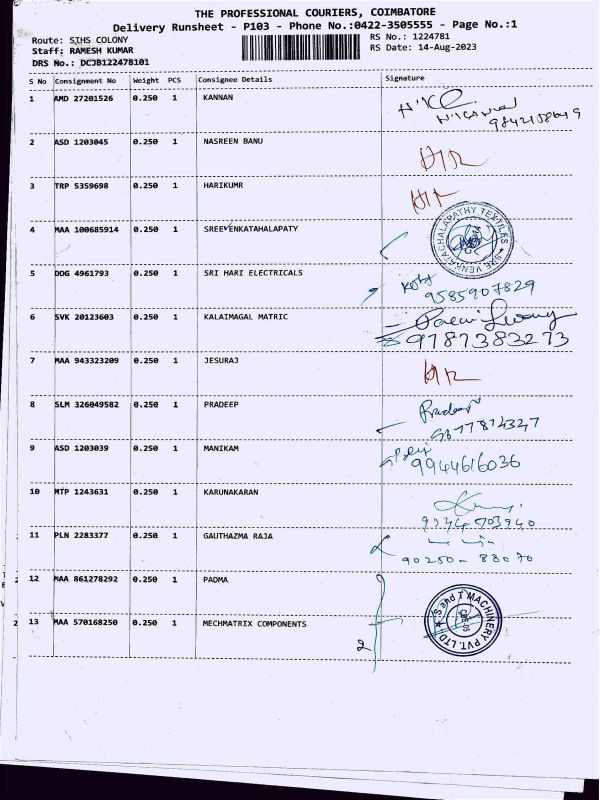 THE PROFESSIONAL COURIERS, COIMBATORE
Delivery Runsheet - P103 - Phone No.:0422-3505555 - Page No.:1
Route: SIHS COLONY
RS No.: 1224781
Staff: RAMESH KUMAR
RS Date: 14-Aug-2023
DRS No.: DCJB122478101
S No Consignment No Weight PCS Consignee Details Signature
1 AMD 27201526 0.250 1 KANNAN
2 ASD 1203045 0.250 1 NASREEN BANU
3 TRP 5359698 0.250 1 HARIKUMR
4 MAA 100685914 0.250 1 SREEVENKATAHALAPATY
SREE VENKATACHALAPATHY TEXTILES
5 DDG 4961793 0.250 1 SRI HARI ELECTRICALS
9585907829
6 SVK 20123603 0.250 1 KALAIMAGAL MATRIC
9787383273
7 MAA 943323209 0.250 1 JESURAJ
8 SLM 326049582 0.250 1 PRADEEP Pradeep
9 ASD 1203039 0.250 1 MANIKAM
9944616036
10 MTP 1243631 0.250 1 KARUNAKARAN
11 PLN 2283377 0.250 1 GAUTHAZMA RAJA
90250-88070
12 MAA 861278292 0.250 1 PADMA
13 MAA 570168250 0.250 1 MECHMATRIX COMPONENTS
S and T MACHINERY PVT. LTD
2